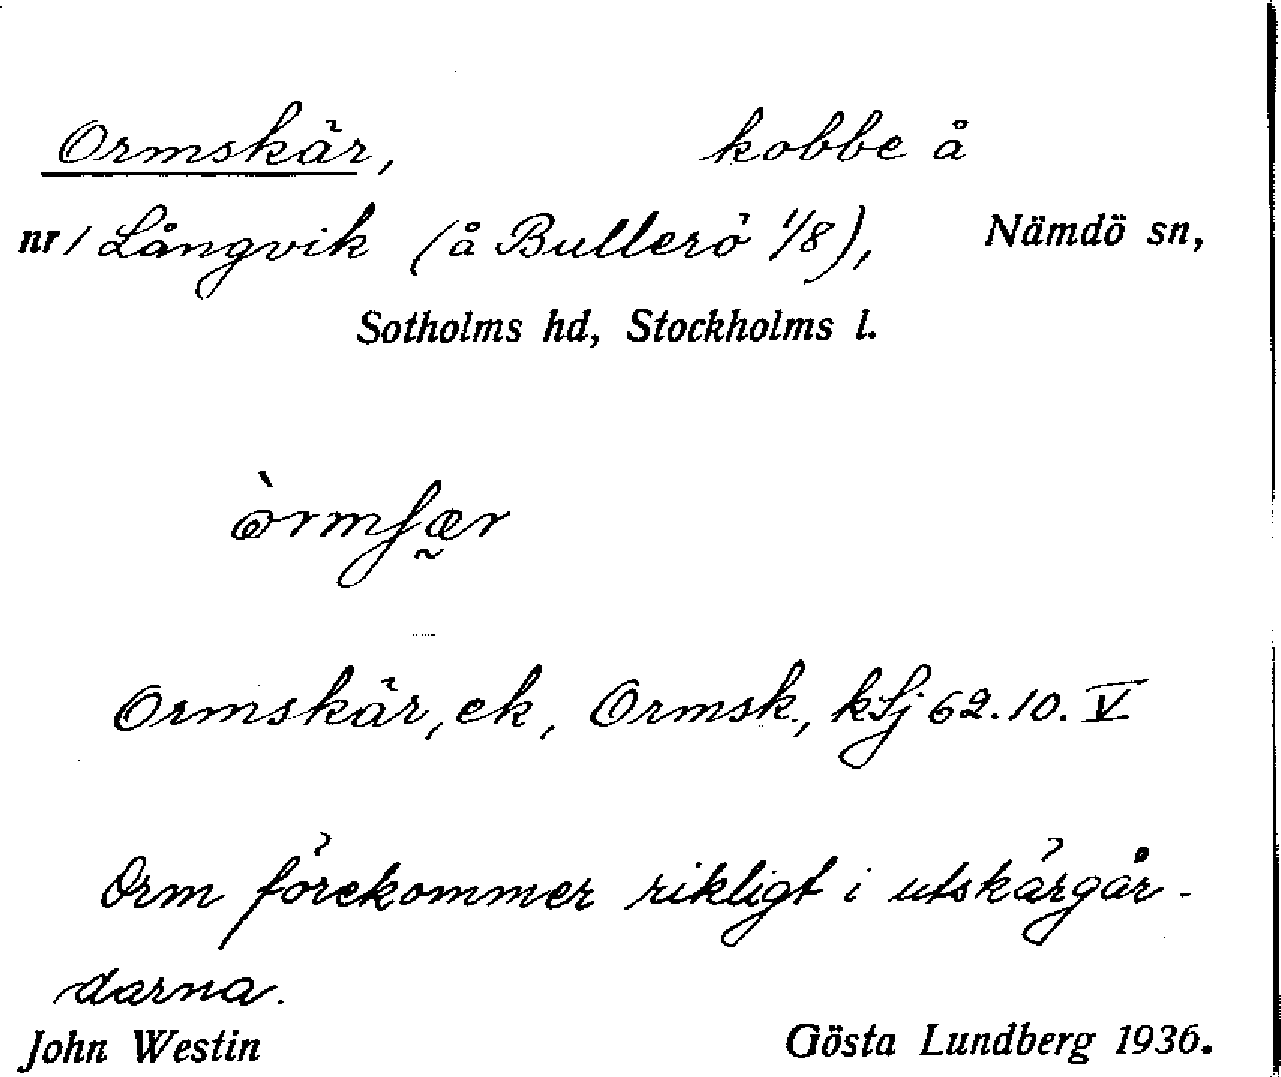 Ormskär, kobbe å
nr 1 Långvik (å Bullerö 1/8), Nämdö sn,
Sotholms hd, Stockholms l.
Ormskär, ek, Ormsk., kSj 62.10. V
Orm förekommer rikligt i utskärgår-
darna.
John Westin Gösta Lundberg 1936.